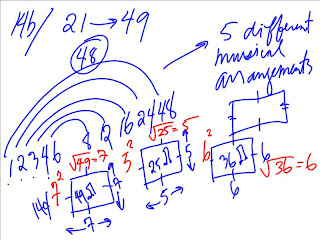 14b/ 21→49
48
5 different
musical
arrangements
1 2 3 4 6 8 12 16 24 48
√49=7
√25=5
7²
5²
6²
49
25
5
36
6
√36=6
7
7
←5→
6